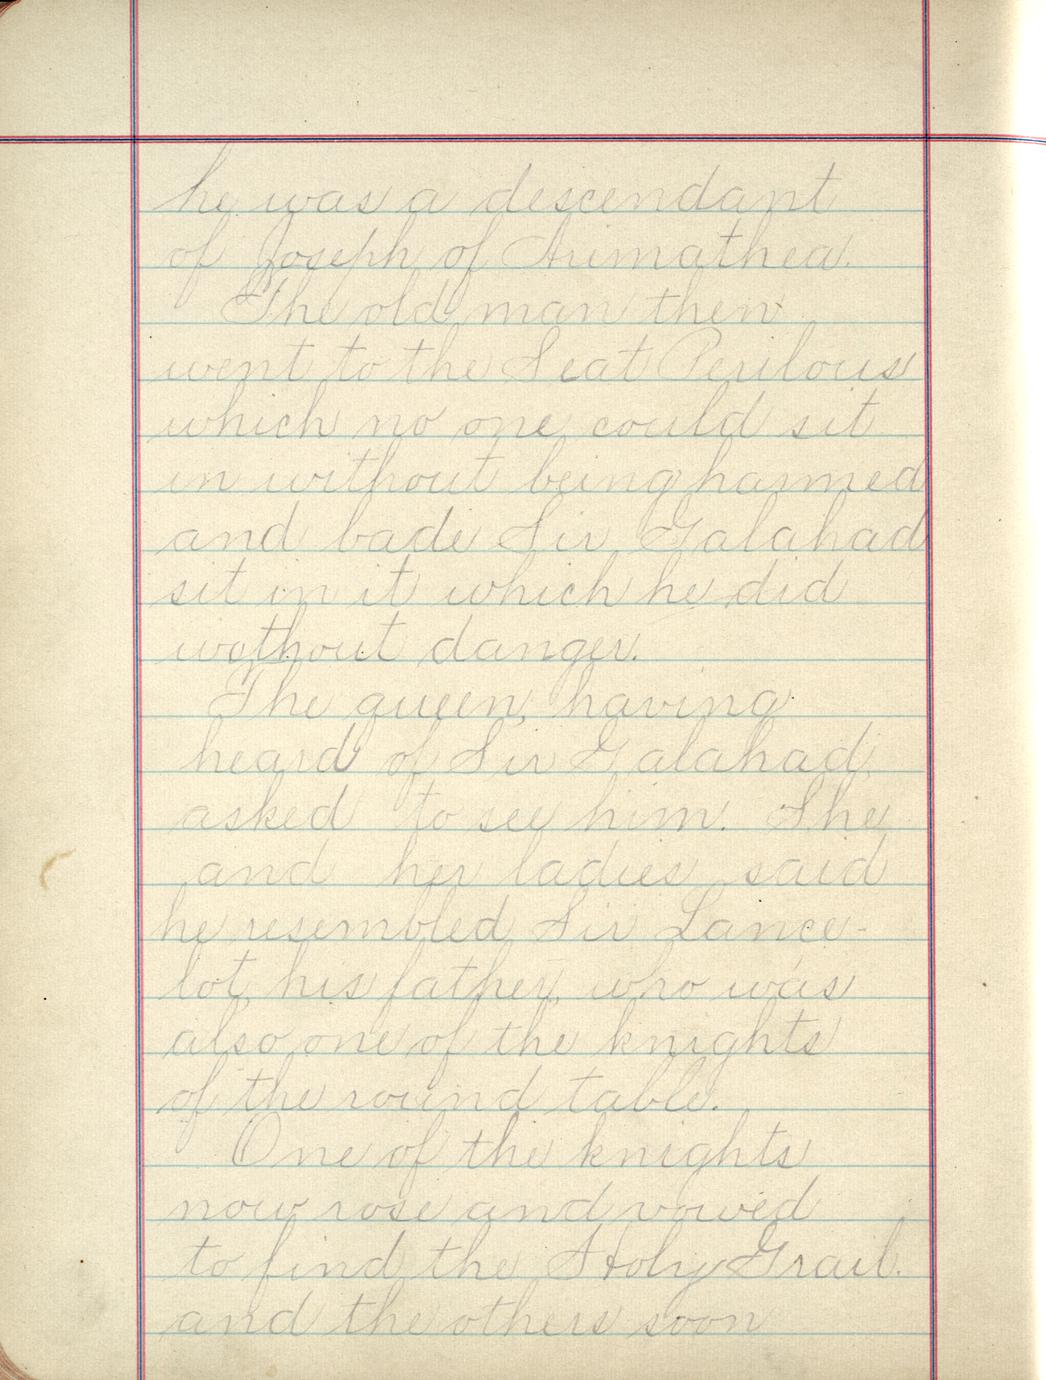 he was a descendant
of Joseph of Arimathea.
The old man then
went to the Seat Perilous
which no one could sit
in without being harmed
and bade Sir Galahad
sit in it which he did
without danger.
The queen, having
heard of Sir Galahad,
asked to see him. She
and her ladies said
he resembled Sir Lance-
lot, his father, who was
also one of the knights
of the round table.
One of the knights
now rose and vowed
to find the Holy Grail.
and the others soon